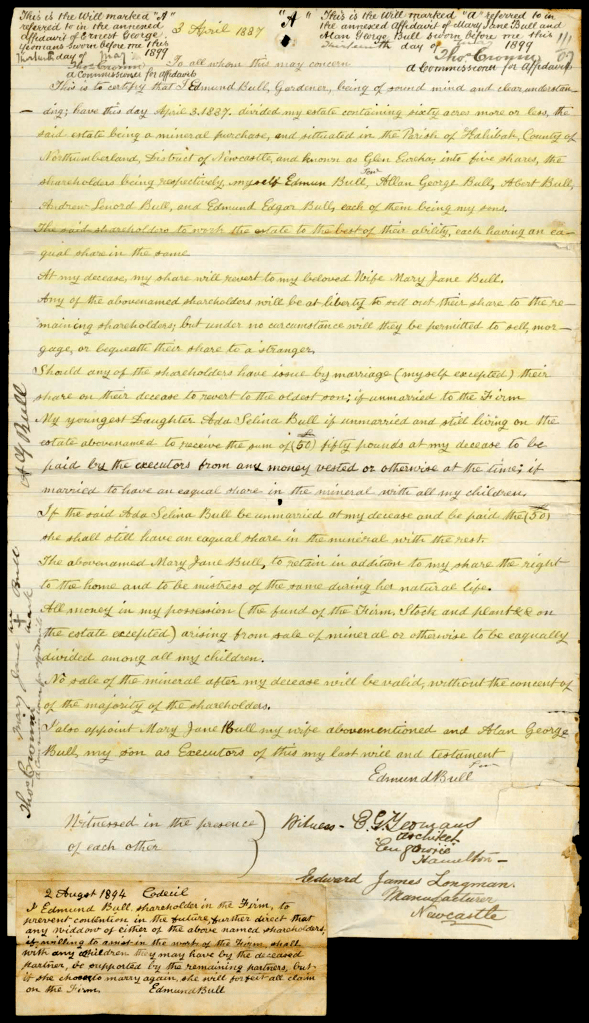 This is the Will marked "A"
referred to in the annexed
Affidavit of Ernest George
Yeomans Sworn before me this
thirteenth day of May 1899
Thos Cronin
a Commissioner for Affidavits
3 April 1887
"A"
This is the Will marked "A" referred to in
the annexed Affidavit of Mary Jane Bull and
Alan George Bull Sworn before me this
thirteenth day of 1899
Thos Cronin
a Commissioner for Affidavits
To all whom this may concern
This is to certify that I Edmund Bull, Gardener, being of sound mind and clear understan-
ding; have this day April 3. 1887. divided my estate containing sixty acres more or less, the
said estate being a mineral purchase, and situated in the Parish of Kalibah, County of
Northumberland, District of Newcastle, and known as Glen Eureka, into five shares, the
shareholders being respectively, myself Edmun Bull, Senr Allan George Bull, Abert Bull,
Andrew Lenord Bull, and Edmund Edgar Bull, each of them being my sons.
The said shareholders to work the estate to the best of their ability, each having an ea-
qual share in the same
At my decease, my share will revert to my beloved Wife Mary Jane Bull.
Any of the abovenamed shareholders will be at liberty to sell out their share to the re-
maining shareholders; but under no carcunstance will they be permitted to sell, mor-
gage, or bequeath their share to a stranger.
Should any of the shareholders have issue by marriage (myself excepted) their
share on their decease to revert to the oldest son; if unmarried to the Firm
My youngest Daughter Ada Selina Bull if unmarried and still living on the
estate abovenamed to receive the sum of (50) fifty pounds at my decease to be
paid by the executors from any money vested or otherwise at the time; if
married to have an eaqual share in the mineral with all my children.
If the said Ada Selina Bull be unmarried at my decease and be paid the (50)
she shall still have an eaqual share in the mineral with the rest
The abovenamed Mary Jane Bull, to retain in addition to my share the right
to the home and to be mistress of the same during her natural life.
All money in my possession (the fund of the Firm, Stock and plant && on
the estate excepted) arising from sale of mineral or otherwise to be eaqually
divided among all my children.
No sale of the mineral after my decease will be valid, without the concent of
of the majority of the shareholders.
I also appoint Mary Jane Bull my wife abovementioned and Alan George
Bull, my son as Executors of this my last will and testament
Edmund Bull Senr
A G Bull
Mary Jane + Bull
her mark
Thos Cronin
Witnessed in the presence
of each other
Witness - E. G. Yeomans
architect
Hamilton -
Edward James Longman.
Manufacturer
Newcastle
2 Augst 1894 Codecil
I Edmund Bull, shareholder in the Firm, to
prevent contention in the future, further direct that
any widdow of either of the above named shareholders,
if willing to assist in the work of the Firm, shall
with any children they may have by the deceased
partner, be supported by the remaining partners, but
if she choose to marry again, she will forfeit all claim
on the Firm. Edmund Bull